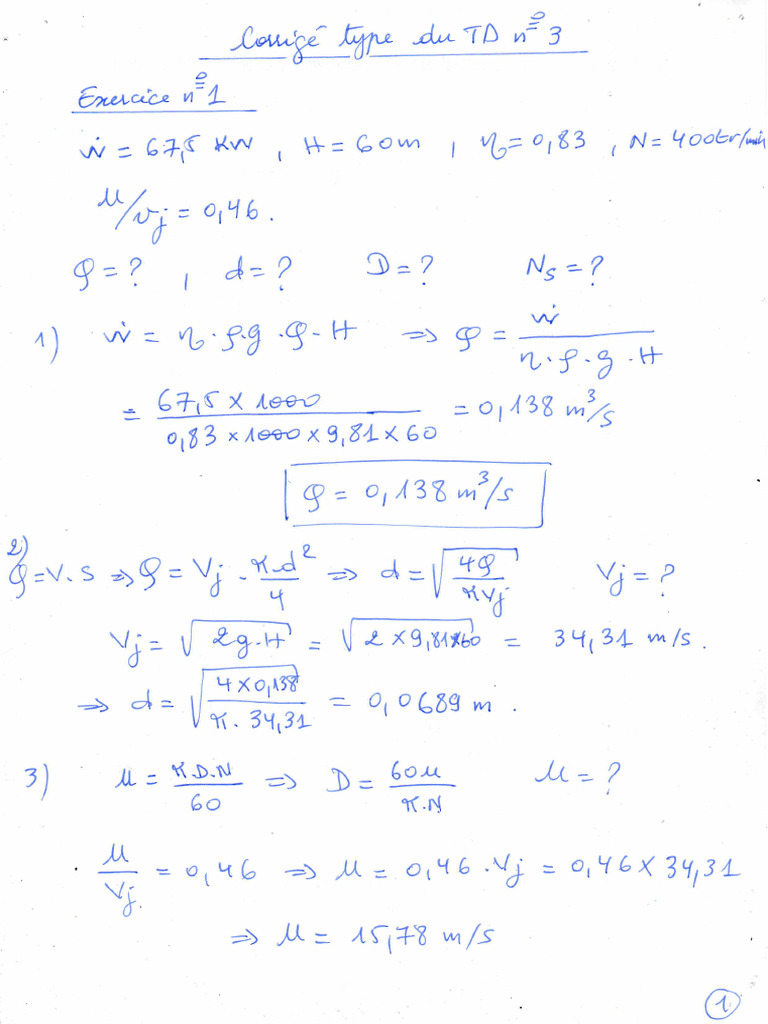 Corrigé type du TD n° 3
Exercice n° 1
ẇ = 67,5 KW , H = 60m , η = 0,83 , N = 400tr/min
u/vj = 0,46.
Q = ? , d = ? D = ? Ns = ?
1) ẇ = η·ρ·g·Q·H ⇒ Q = ẇ / (η·ρ·g·H)
= (67,5 x 1000) / (0,83 x 1000 x 9,81 x 60) = 0,138 m³/s
Q = 0,138 m³/s
2) Q = V.S ⇒ Q = Vj · (π.d²)/4 ⇒ d = √(4Q / πVj) Vj = ?
Vj = √(2g.H) = √(2 x 9,81 x 60) = 34,31 m/s.
⇒ d = √((4 x 0,138) / (π. 34,31)) = 0,0689 m .
3) u = (π.D.N)/60 ⇒ D = 60u / (π.N) u = ?
u/Vj = 0,46 ⇒ u = 0,46 . Vj = 0,46 x 34,31
⇒ u = 15,78 m/s
1